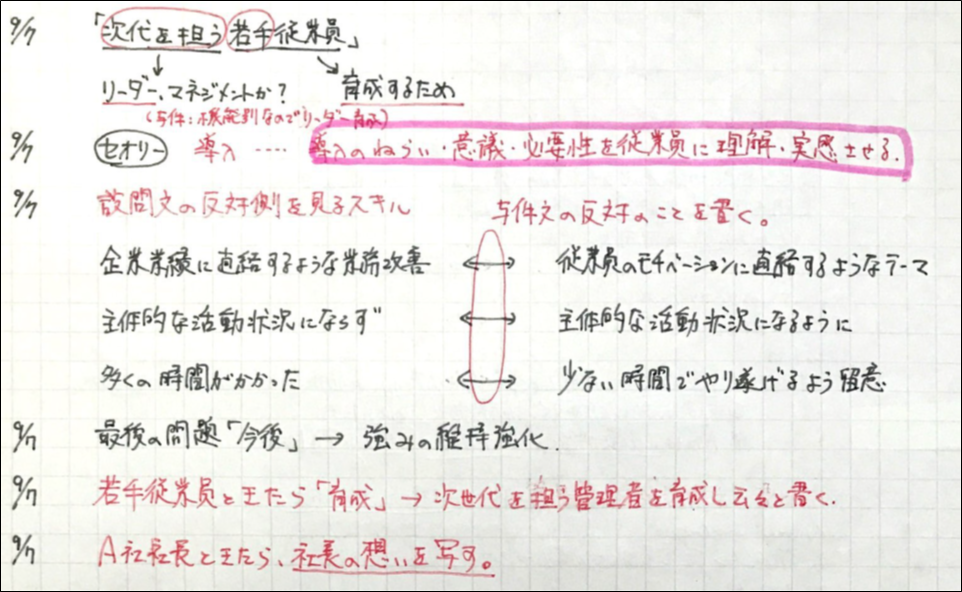 9/7 「次代を担う若手従業員」
リーダー、マネジメントか? 育成するため
(与件:機能別なのでリーダー育成)
9/7 セオリー 導入 ‥‥ 導入のねらい・意議・必要性を従業員に理解・実感させる.
9/7 設問文の反対側を見るスキル 与件文の反対のことを書く。
企業業績に直結するような業務改善 ↔ 従業員のモチベーションに直結するようなテーマ
主体的な活動状況にならず ↔ 主体的な活動状況になるように
多くの時間がかかった ↔ 少ない時間でやり遂げるよう留意
9/7 最後の問題「今後」→ 強みの維持強化.
9/7 若手従業員ときたら「育成」→ 次世代を担う管理者を育成し云々と書く.
9/7 A社社長ときたら、社長の想いを写す。